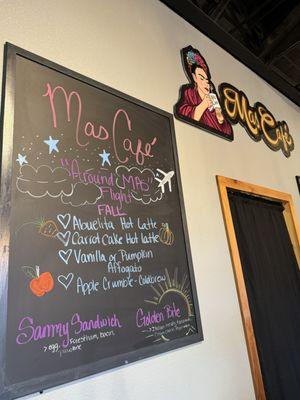 Mas Café
"Around MAS
Flight"
FALL
Abuelita Hot Latte
Carrot Cake Hot latte
Vanilla or Pumpkin
Affogato
Apple Crumble - Coldbrew
Sammy Sandwich
> egg,
bacon
Golden Bite
Mas Café